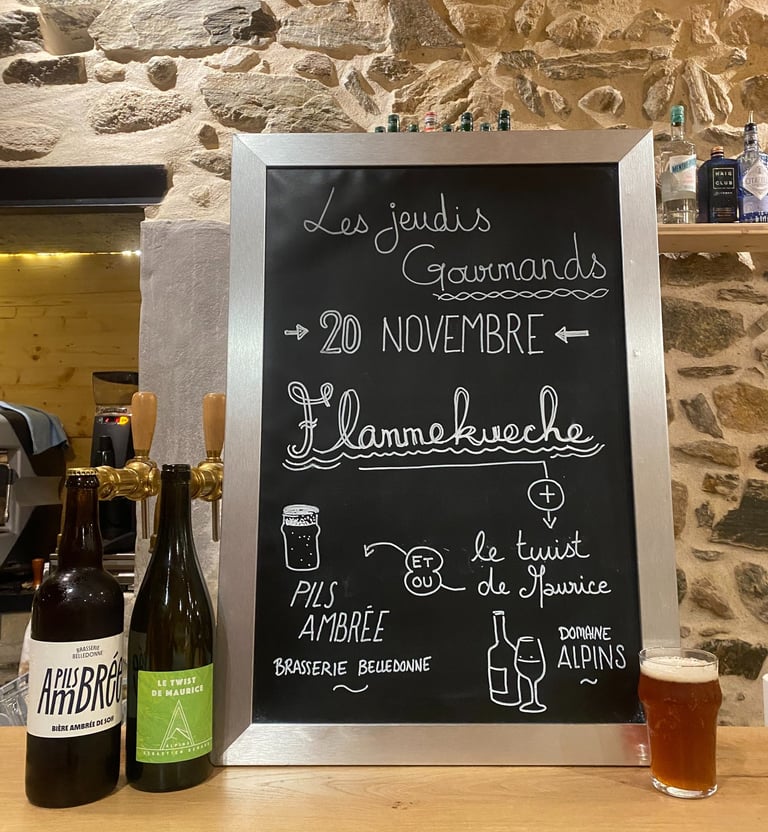 Les jeudis
Gourmands
→ 20 NOVEMBRE ←
Flammekueche
+
ET
OU
le twist
de Maurice
PILS
AMBRÉE
BRASSERIE BELLEDONNE
DOMAINE
ALPINS
BRASSERIE
BELLEDONNE
PILS
AMBRÉE
BIÈRE AMBRÉE DE SOIF
LE TWIST
DE MAURICE
ALPINS
HAIG
CLUB